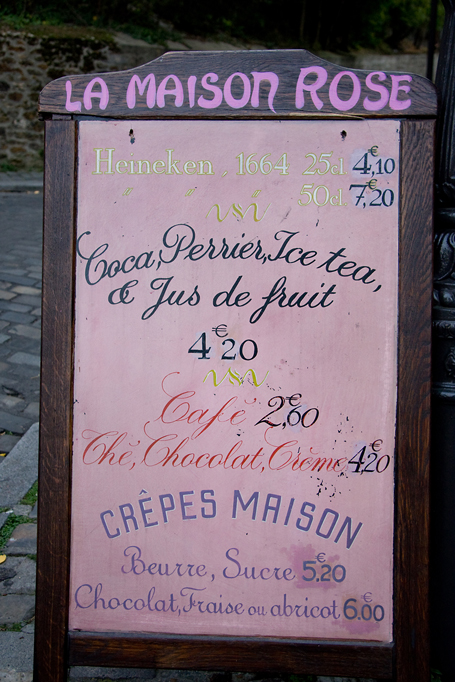 LA MAISON ROSE
Heineken, 1664 25cl 4€,10
" " " 50cl 7€,20
Coca, Perrier, Ice tea,
& Jus de fruit
4€20
Café 2€,60
Thé, Chocolat, Crème 4€,20
CRÊPES MAISON
Beurre, Sucre 5€20
Chocolat, Fraise ou abricot 6€00